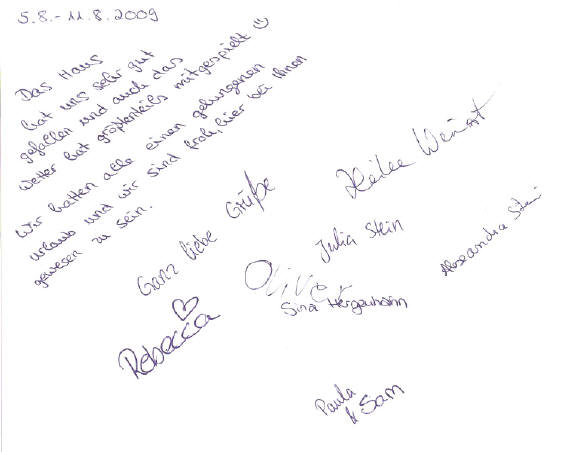 5.8.-11.8.2009
Das Haus
hat uns sehr gut
gefallen und auch das
Wetter hat größtenteils mitgespielt ☺
Wir hatten alle einen gelungenen
Urlaub und wir sind froh, hier bei Ihnen
gewesen zu sein.
Ganz liebe Grüße
Julia Stein
Alexandra Stein
Oliver
Sina Hergenhahn
Rebecca
Paula
& Sam